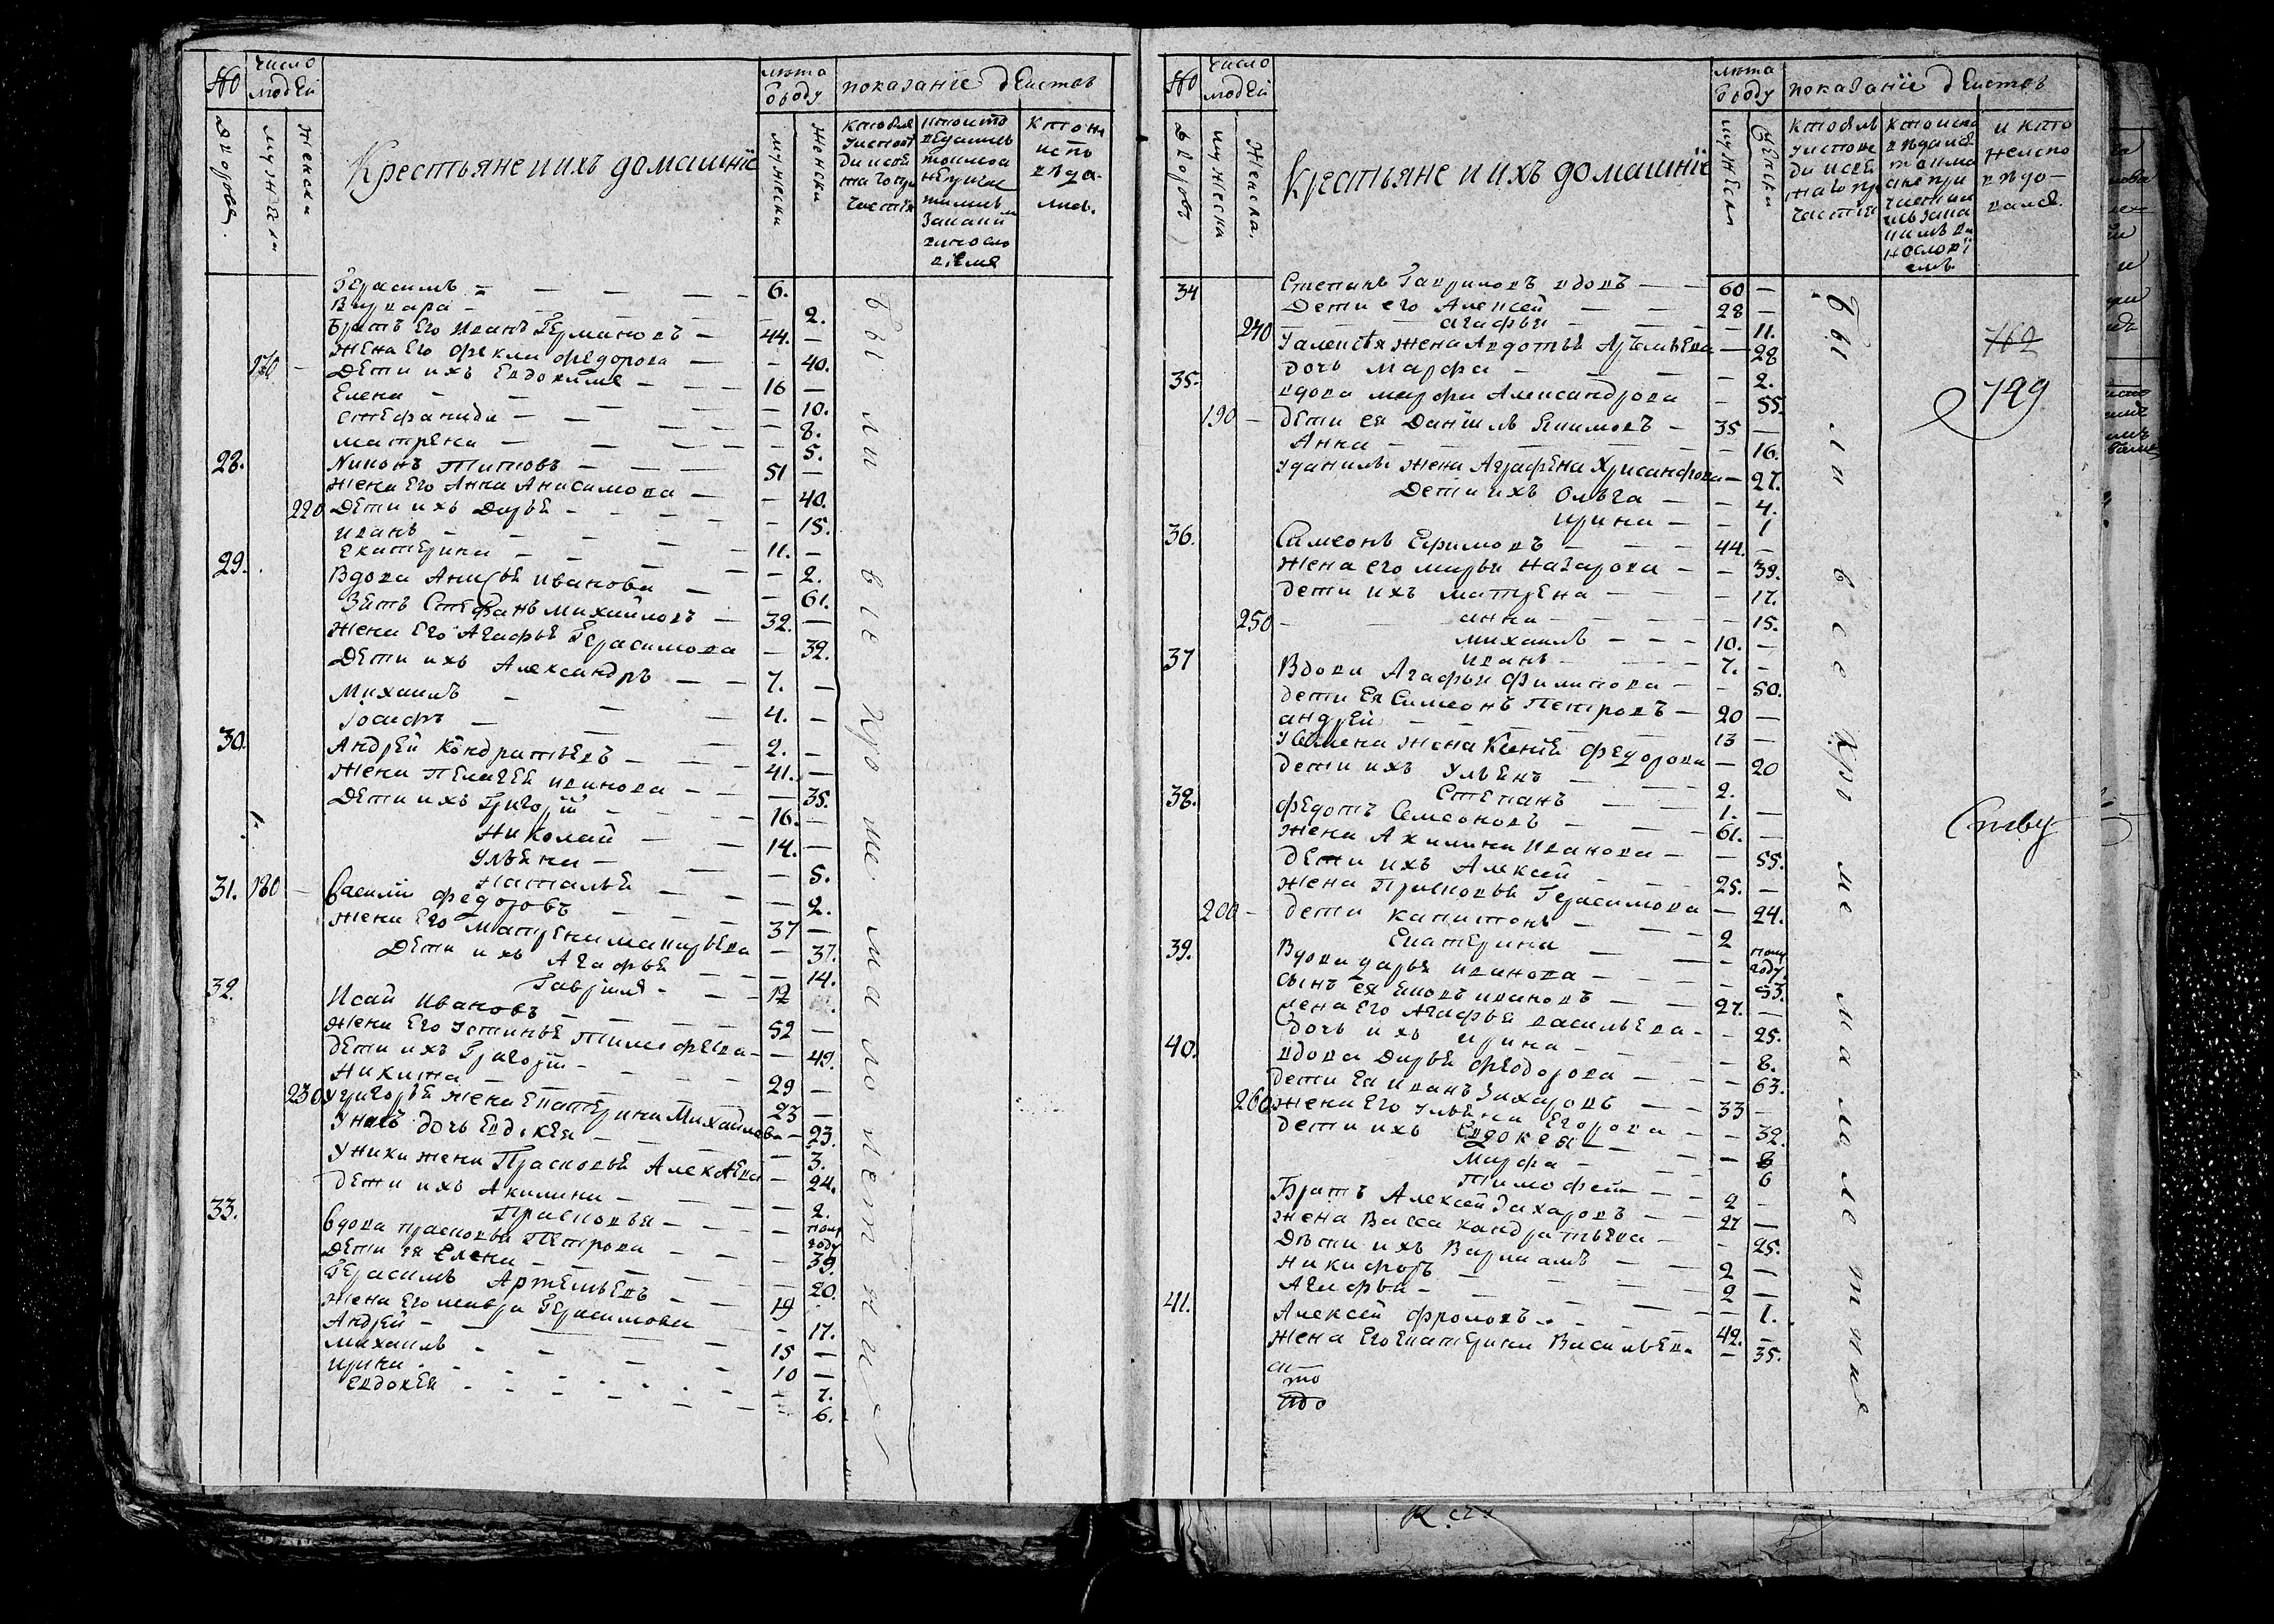 №
число
людей
лѣта
Ѿ роду
показанїе дѣиствъ
дворовъ
мужеска
женска
Крестьяне и ихъ домашнїе
мужеска
женска
Герасимъ 6.
Варвара 2.
Братъ его Иванъ Германовъ 44.
Жена его Фекла Федорова 40.
170 Дети ихъ Евдокимъ 16
Елена 10.
Стефанида 8.
Матрена 5.
28. Никонъ Титовъ 51
Жена его Анна Анисимова 40.
220 Дети ихъ Дарья 15.
Иванъ 11.
Екатерина 2.
29. Вдова Анисья Иванова 61.
Зять Стефанъ Михайловъ 32.
Жена его Агафья Герасимова 32.
Дети ихъ Александръ 7.
Михаилъ 4.
Іосифъ 2.
30. Андрей Кондратьевъ 41.
Жена Пелагея Иванова 35.
Дети ихъ Григорїй 16.
Николай 14.
Ульяна 5.
Наталья 2.
31. 180 Василїй Федоровъ 37
Жена его Матрена 37.
Дети ихъ Агафья 14.
Гаврїилъ 12
32. Исай Ивановъ 52
Жена его Устинья Тимофеева 49.
Дети ихъ Григорїй 29
Никита 23
230 У Григорья жена Екатерина Михайлова 23.
У нихъ дочь Евдокея 3.
У Никиты жена Прасковья Алексѣева 24.
Дети ихъ Акилина 2.
Прасковья полугоду
33. Вдова Прасковья Петрова 39.
Дети ея Елена 20.
Герасимъ Артемьевъ 19
Жена его Мавра Герасимова 17.
Андрей 15
Михаилъ 10
Ирина 7.
Евдокея 6.
Были все кро ме ма ло лет ные
№
число
людей
лѣта
Ѿ роду
показанїе дѣиствъ
дворовъ
мужеска
женска
Крестьяне и ихъ домашнїе
мужеска
женска
34 Степанъ Гавриловъ вдовъ 60
Дети его Алексей 28
240 Агафья 11.
У Алексея жена Авдотья Артемьева 28
Дочь Марфа 2.
35. Вдова Марфа Александрова 55.
190 Дети ея Данїилъ Екимовъ 35
Анна 16.
У Данилы жена Аграфена Хрисанфова 27.
Дети ихъ Ольга 4.
Ирина 1
36. Симеонъ Ефимовъ 44.
Жена его Марья Назарова 39.
Дети ихъ Матрена 17.
250 Анна 15.
Михаилъ 10.
Иванъ 7.
37 Вдова Агафья Филипова 50.
Дети ея Симеонъ Петровъ 20
Андрей 13
У Семена жена Ксенїя Федорова 20
Дети ихъ Ульянъ 2.
Степанъ 1.
38. Федотъ Семеоновъ 61.
Жена Акилина Иванова 55.
Дети ихъ Алексей 25.
Жена Прасковья Герасимова 24.
200 Дети Капитонъ 2
Екатерина полугоду
39. Вдова Дарья Иванова 53.
Сынъ ея Яковъ Ивановъ 27.
Жена его Агафья Васильева 25.
Дочь ихъ Ирина 8.
40. Вдова Дарья Феодорова 63.
Дети ея Иванъ Захаровъ 33
260 Жена его Ульяна Егорова 32.
Дети ихъ Евдокея 8
Марфа 6
Тимофей 2
Братъ Алексей Захаровъ 27
Жена Васса Кандратьева 25.
Дѣти ихъ Варлаамъ 2
Никифоръ 2
Агафья 1.
41. Алексей Фроловъ 42.
Жена его Екатерина Васильева 35.
Были все кро ме ма ло лет ные
762
799